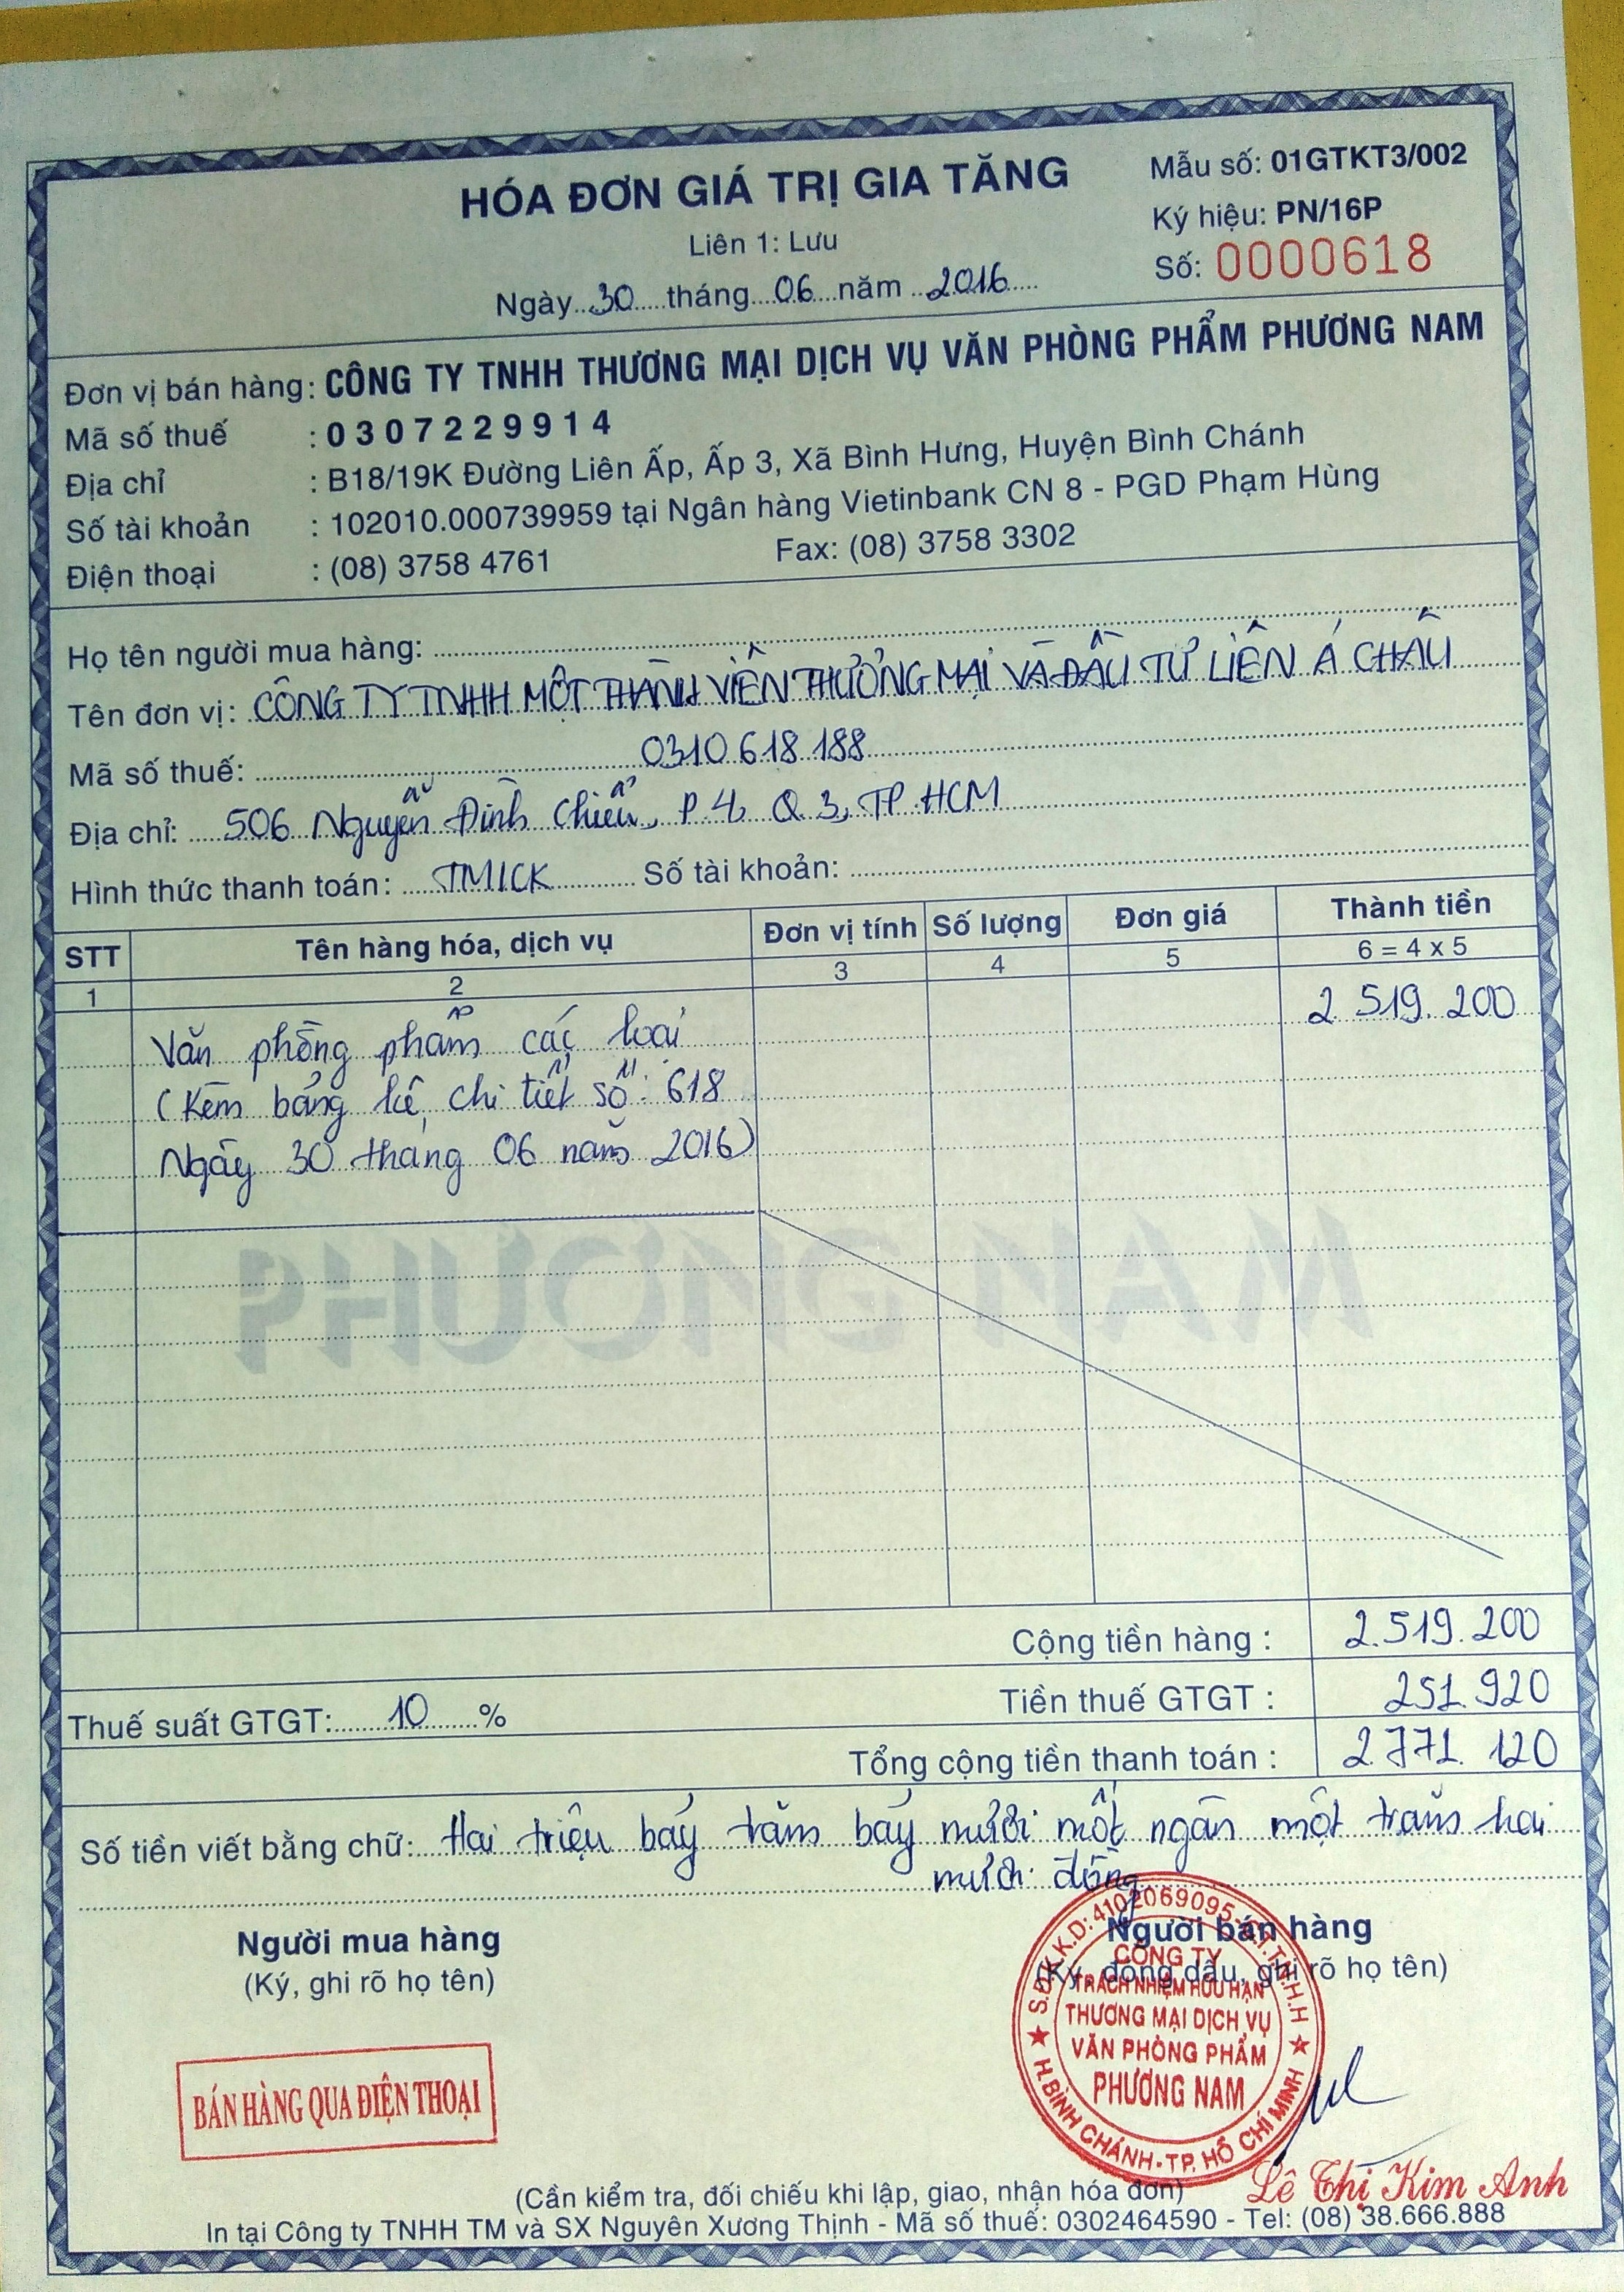 HÓA ĐƠN GIÁ TRỊ GIA TĂNG
Liên 1: Lưu
Ngày 30 tháng 06 năm 2016
Mẫu số: 01GTKT3/002
Ký hiệu: PN/16P
Số: 0000618
Đơn vị bán hàng: CÔNG TY TNHH THƯƠNG MẠI DỊCH VỤ VĂN PHÒNG PHẨM PHƯƠNG NAM
Mã số thuế : 0307229914
Địa chỉ : B18/19K Đường Liên Ấp, Ấp 3, Xã Bình Hưng, Huyện Bình Chánh
Số tài khoản : 102010.000739959 tại Ngân hàng Vietinbank CN 8 - PGD Phạm Hùng
Điện thoại : (08) 3758 4761 Fax: (08) 3758 3302
Họ tên người mua hàng:
Tên đơn vị: CÔNG TY TNHH MỘT THÀNH VIÊN THƯƠNG MẠI VÀ ĐẦU TƯ LIÊN Á CHÂU
Mã số thuế: 0310 618 188
Địa chỉ: 506 Nguyễn Đình Chiểu, P.4, Q.3, TP.HCM
Hình thức thanh toán: TM/CK Số tài khoản:
STT Tên hàng hóa, dịch vụ Đơn vị tính Số lượng Đơn giá Thành tiền
1 2 3 4 5 6 = 4 x 5
Văn phòng phẩm các loại 2.519.200
(Kèm bảng kê chi tiết số: 618
Ngày 30 tháng 06 năm 2016)
PHƯƠNG NAM
Cộng tiền hàng : 2.519.200
Thuế suất GTGT: 10 % Tiền thuế GTGT : 251.920
Tổng cộng tiền thanh toán : 2.771.120
Số tiền viết bằng chữ: Hai triệu bảy trăm bảy mươi mốt ngàn một trăm hai
mươi đồng
Người mua hàng
(Ký, ghi rõ họ tên)
Người bán hàng
(Ký, đóng dấu, ghi rõ họ tên)
BÁN HÀNG QUA ĐIỆN THOẠI
S.Đ.K.K.D: 4102069095-C.T.T.N.H.H
CÔNG TY
TRÁCH NHIỆM HỮU HẠN
THƯƠNG MẠI DỊCH VỤ
VĂN PHÒNG PHẨM
PHƯƠNG NAM
H.BÌNH CHÁNH-TP. HỒ CHÍ MINH
Lê Thị Kim Anh
(Cần kiểm tra, đối chiếu khi lập, giao, nhận hóa đơn)
In tại Công ty TNHH TM và SX Nguyên Xương Thịnh - Mã số thuế: 0302464590 - Tel: (08) 38.666.888